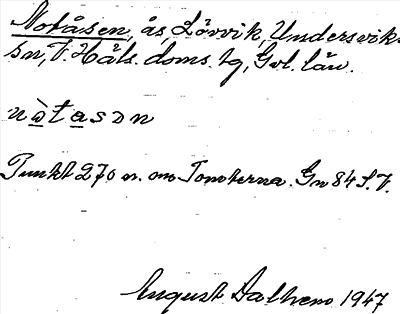 Notåsen, ås, Lövvik, Undersviks
sn, V. Häls. doms. tg, Gvl. län.
nòtasɔn
Punkt 270 m. om Tomterna. Gn 84 S.V.
August Dalhem 1947